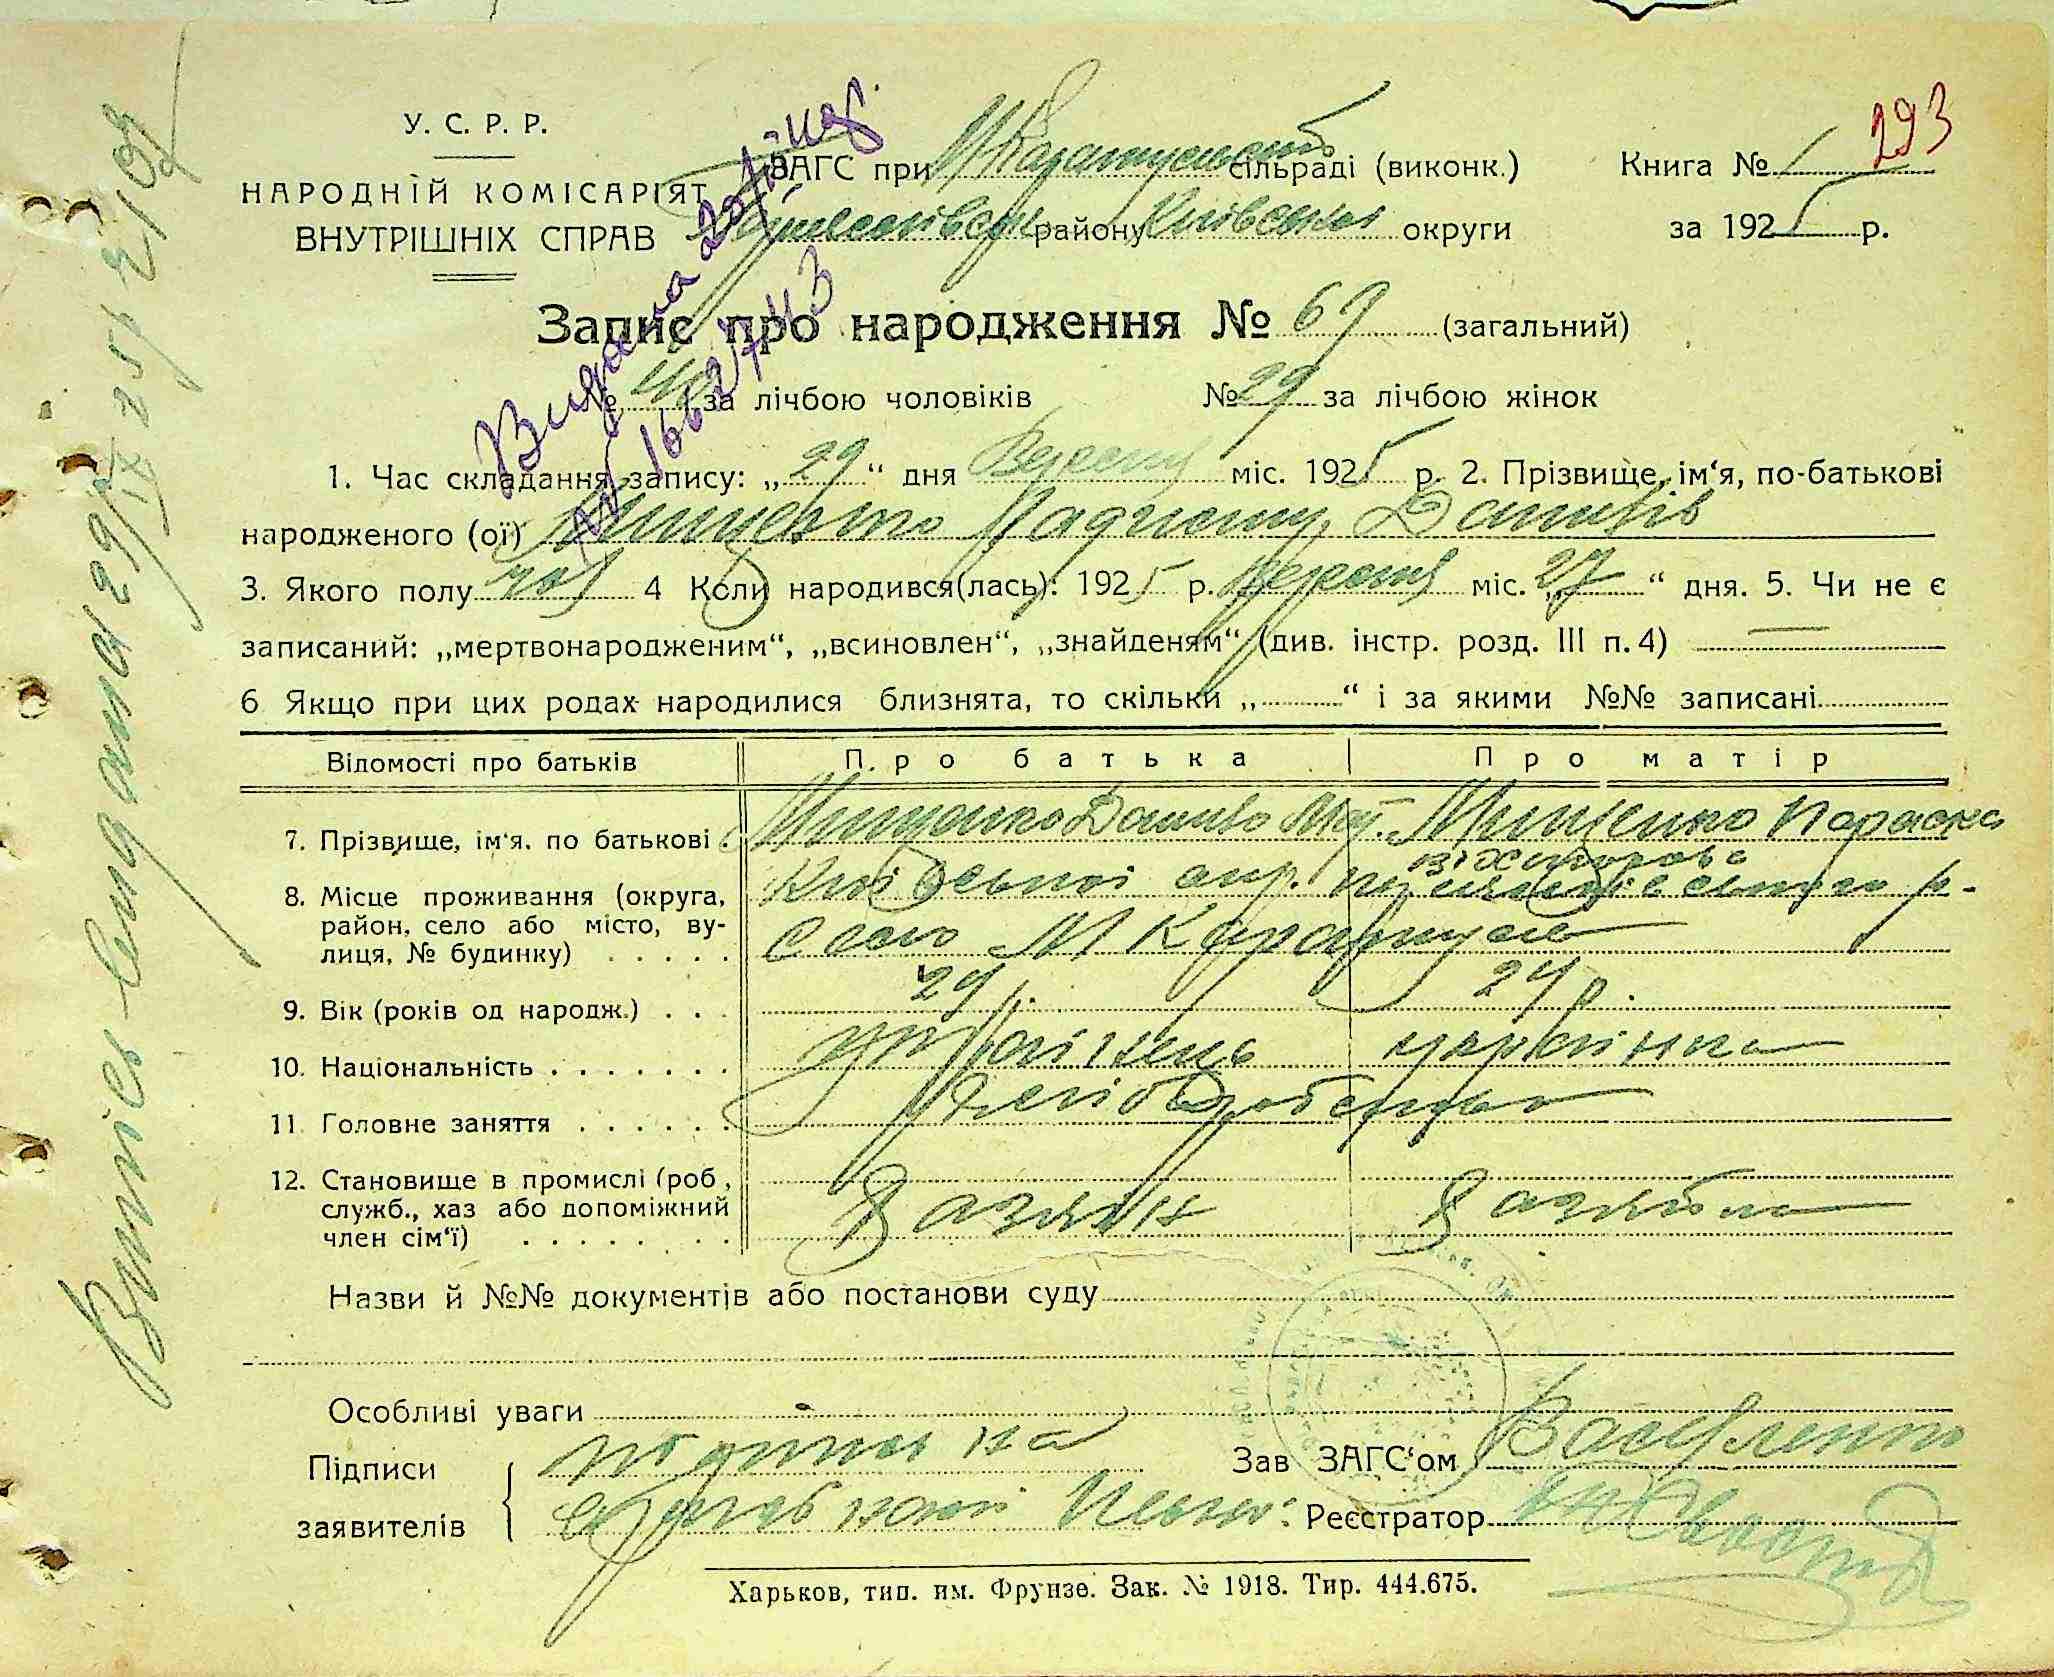 293
У. С. Р. Р.
НАРОДНІЙ КОМІСАРІЯТ
ВНУТРІШНІХ СПРАВ
ЗАГС при М Каратульской сільраді (виконк.)
району Київської округи
Книга № 1
за 1925 р.
Видана
№ 166
Запис про народження № 69 (загальний)
№ 40 за лічбою чоловіків № 29 за лічбою жінок
1. Час складання запису: „29“ дня Вересня міс. 1925 р. 2. Прізвище, ім‘я, по-батькові
народженого (ої) Мищенко Данилів
3. Якого полу чол 4 Коли народився(лась): 1925 р. Вересня міс. „27“ дня. 5. Чи не є
записаний: „мертвонародженим“, „всиновлен“, „знайденям“ (див. інстр. розд. III п. 4) —
6 Якщо при цих родах народилися близнята, то скільки „ “ і за якими №№ записані
Відомості про батьків Про батька Про матір
7. Прізвище, ім‘я. по батькові . Мищенко Данило Мат. Мищенко Параска
8. Місце проживання (округа, Київської окр. р-
район, село або місто, ву- село М Каратуль
лиця, № будинку) . . . . .
9. Вік (років од народж.) . . . 24 р. 24 р.
10. Національність . . . . . . . українець українка
11. Головне заняття . . . . . . хліборобство
12. Становище в промислі (роб , хазяїн хазяйка
служб., хаз або допоміжний
член сім‘ї) . . . . . . . .
Назви й №№ документів або постанови суду
Особливі уваги
Підписи
заявителів
Зав ЗАГС‘ом Василенко
Реєстратор
Харьков, тип. им. Фрунзе. Зак. № 1918. Тир. 444.675.